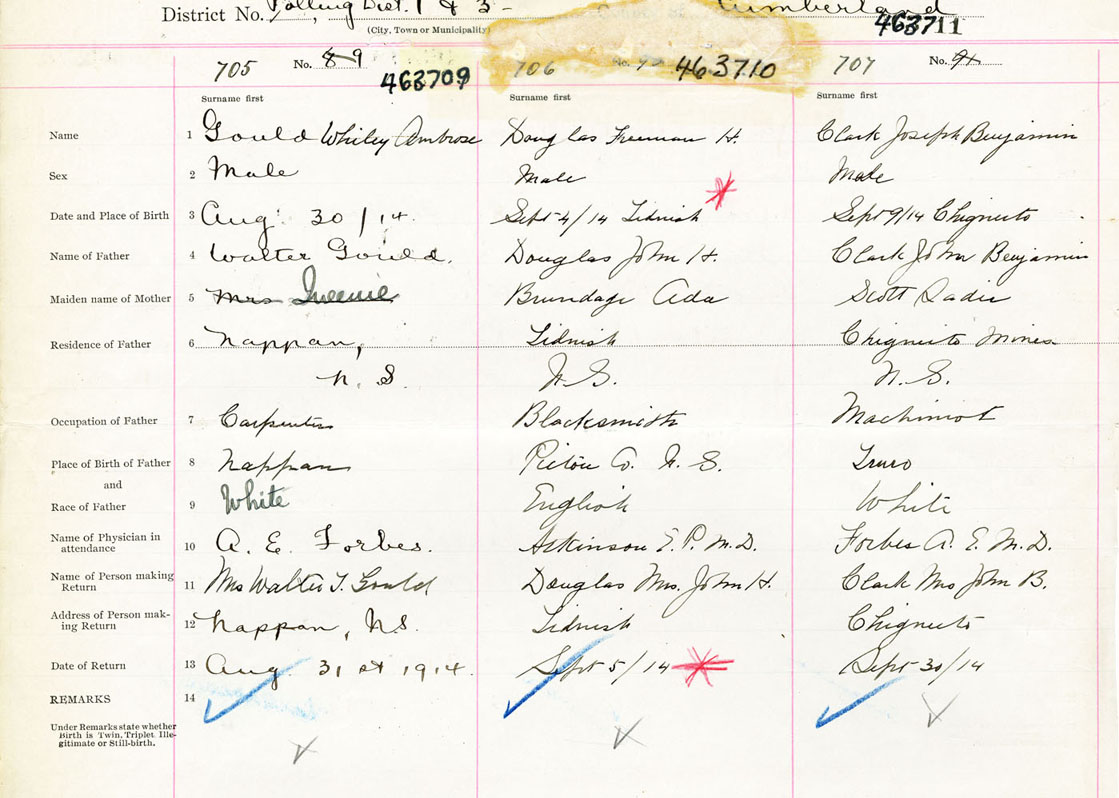 District No. Polling Dist. 1 & 3 - Cumberland
(City, Town or Municipality) 463711
705 No. 89 463709 706 No. 463710 707 No.
Surname first Surname first Surname first
Name 1 Gould Whiley Ambrose Douglas Freeman H. Clark Joseph Benjamin
Sex 2 Male Male Male
Date and Place of Birth 3 Aug. 30/14. Sept 4/14 Lidnish Sept 9/14 Chignecto
Name of Father 4 Walter Gould. Douglas John H. Clark John Benjamin
Maiden name of Mother 5 Mrs Brundage Ada Scott Sadie
Residence of Father 6 Nappan, Lidnish Chignecto Mines
N. S. N. S. N. S.
Occupation of Father 7 Carpenter Blacksmith Machinist
Place of Birth of Father 8 Nappan Pictou Co. N. S. Truro
and
Race of Father 9 White English White
Name of Physician in
attendance 10 A. E. Forbes. Atkinson E. P. M. D. Forbes A. E. M. D.
Name of Person making
Return 11 Mrs Walter T. Gould Douglas Mrs. John H. Clark Mrs John B.
Address of Person mak-
ing Return 12 Nappan, N.S. Lidnish Chignecto
Date of Return 13 Aug 31st 1914. Sept 5/14 Sept 30/14
REMARKS 14
Under Remarks state whether
Birth is Twin, Triplet, Ille-
gitimate or Still-birth.